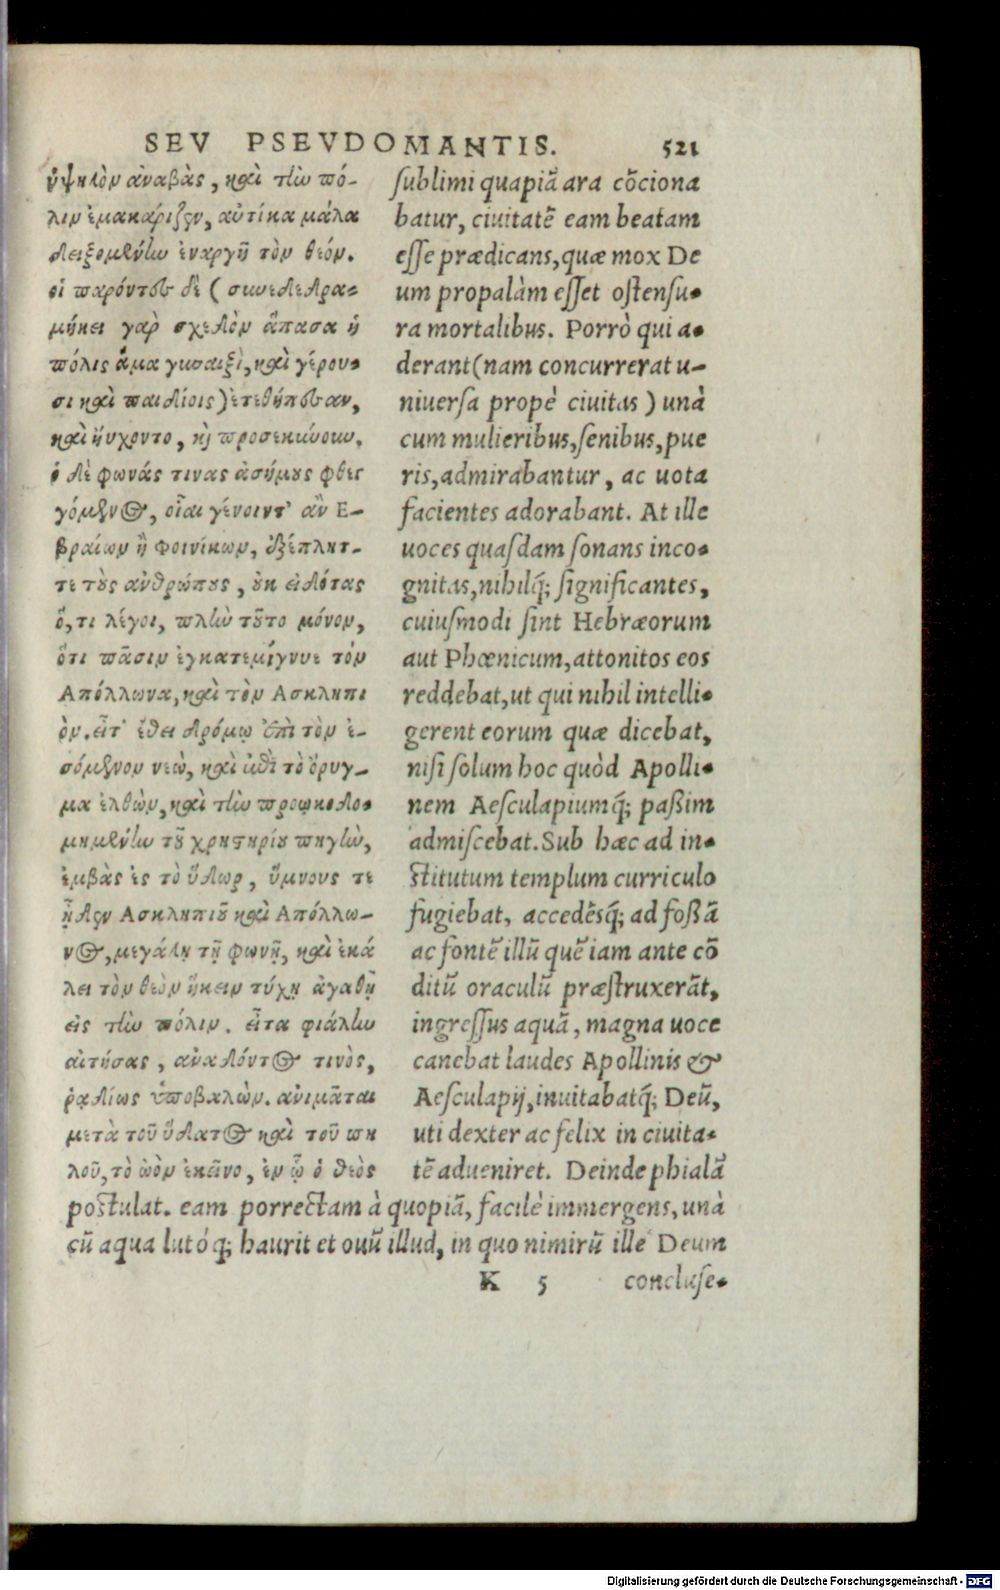 SEV PSEVDOMANTIS. 521
ὑψηλὸν ἀναβὰς, καὶ τὴν πό-
λιν ἐμακάριζεν, αὐτίκα μάλα
δειξομένην ἐναργῆ τὸν θεόν.
οἱ παρόντες δὲ ( συνεδεδρα-
μήκει γὰρ σχεδὸν ἅπασα ἡ
πόλις ἅμα γυναιξὶ, καὶ γέρου-
σι καὶ παιδίοις) ἐτεθήπεσαν,
καὶ ηὔχοντο, κὶ προσεκύνουν.
ὁ δὲ φωνάς τινας ἀσήμους φθεγ
γόμενος, οἷαι γένοιντ' ἂν Ε-
βραίων ἢ Φοινίκων, ἐξέπλητ-
τε τοὺς ἀνθρώπους, οὐκ εἰδότας
ὅ,τι λέγοι, πλὴν τοῦτο μόνον,
ὅτι πᾶσιν ἐγκατεμίγνυε τὸν
Απόλλωνα, καὶ τὸν Ασκληπι
ὸν. εἶτ' ἔθει δρόμῳ ἐπὶ τὸν ἐ-
σόμενον νεὼ, καὶ ἐπὶ τὸ ὄρυγ-
μα ἐλθὼν, καὶ τὴν προῳκοδο-
μημένην τοῦ χρηστηρίου πηγὴν,
ἐμβὰς ἐς τὸ ὕδωρ, ὕμνους τε
ᾖδεν Ασκληπιοῦ καὶ Απόλλω-
νος, μεγάλῃ τῇ φωνῇ, καὶ ἐκά
λει τὸν θεὸν ἥκειν τύχῃ ἀγαθῇ
εἰς τὴν πόλιν. εἶτα φιάλην
αἰτήσας, ἀναδόντος τινὸς,
ῥᾳδίως ὑποβαλὼν. ἀνιμᾶται
μετὰ τοῦ ὕδατος καὶ τοῦ πη
λοῦ, τὸ ὠὸν ἐκεῖνο, ἐν ᾧ ὁ θεὸς
sublimi quapiã ara cõciona
batur, ciuitatẽ eam beatam
esse prædicans, quæ mox De
um propalàm esset ostensu-
ra mortalibus. Porrò qui a-
derant (nam concurrerat u-
niuersa propè ciuitas) unà
cum mulieribus, senibus, pue
ris, admirabantur, ac uota
facientes adorabant. At ille
uoces quasdam sonans inco-
gnitas, nihilq́; significantes,
cuiusmodi sint Hebræorum
aut Phœnicum, attonitos eos
reddebat, ut qui nihil intelli-
gerent eorum quæ dicebat,
nisi solum hoc quòd Apolli-
nem Aesculapiumq́; paßim
admiscebat. Sub hæc ad in-
stitutum templum curriculo
fugiebat, accedẽsq́; ad foßã
ac fontẽ illũ quẽ iam ante cõ
ditũ oraculũ præstruxerãt,
ingressus aquã, magna uoce
canebat laudes Apollinis &
Aesculapij, inuitabatq́; Deũ,
uti dexter ac felix in ciuita-
tẽ adueniret. Deinde phialã
postulat. eam porrectam à quopiã, facilè immergens, unà
cũ aqua lutóq́; haurit et ouũ illud, in quo nimirũ ille Deum
K 5 concluse-
Digitalisierung gefördert durch die Deutsche Forschungsgemeinschaft - DFG